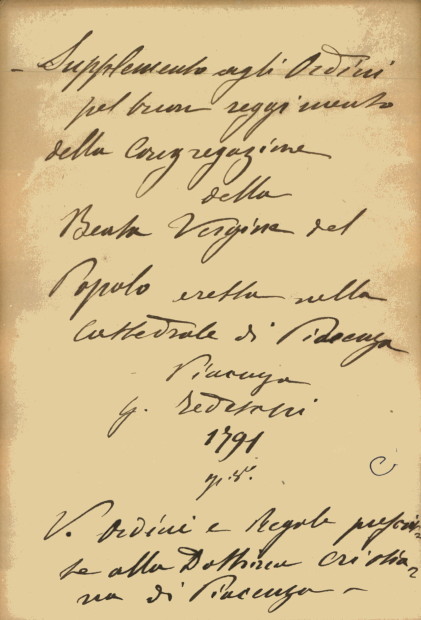 Supplemento agli Ordini
pel buon reggimento
della Congregazione
della
Beata Vergine del
Popolo eretta nella
Cattedrale di Piacenza
Piacenza
G. Tedeschi
1791
V. Ordini e Regole prescri-
te alla Dottrina Cristia-
na di Piacenza -